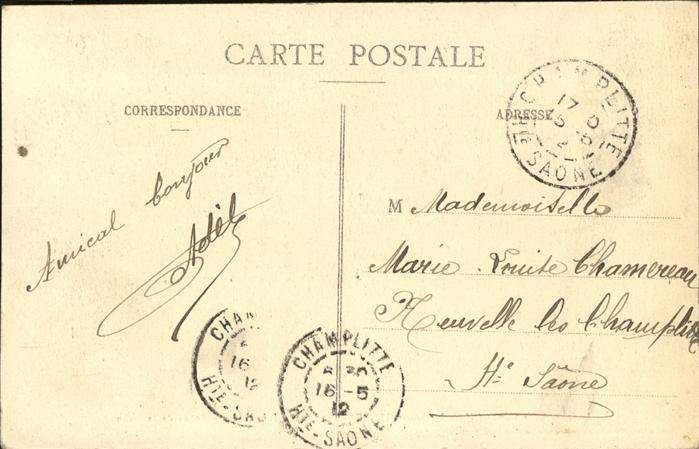 CARTE POSTALE
CORRESPONDANCE
ADRESSE
CHAMPLITTE
17
5
12
HTE SAONE
Amical bonjour
M Mademoiselle
Marie Louise Chamereau
Neuvelle les Champlitte
Hte Saône
CHAM
16
12
HTE-SAO
CHAMPLITTE
16-5
12
HTE-SAONE